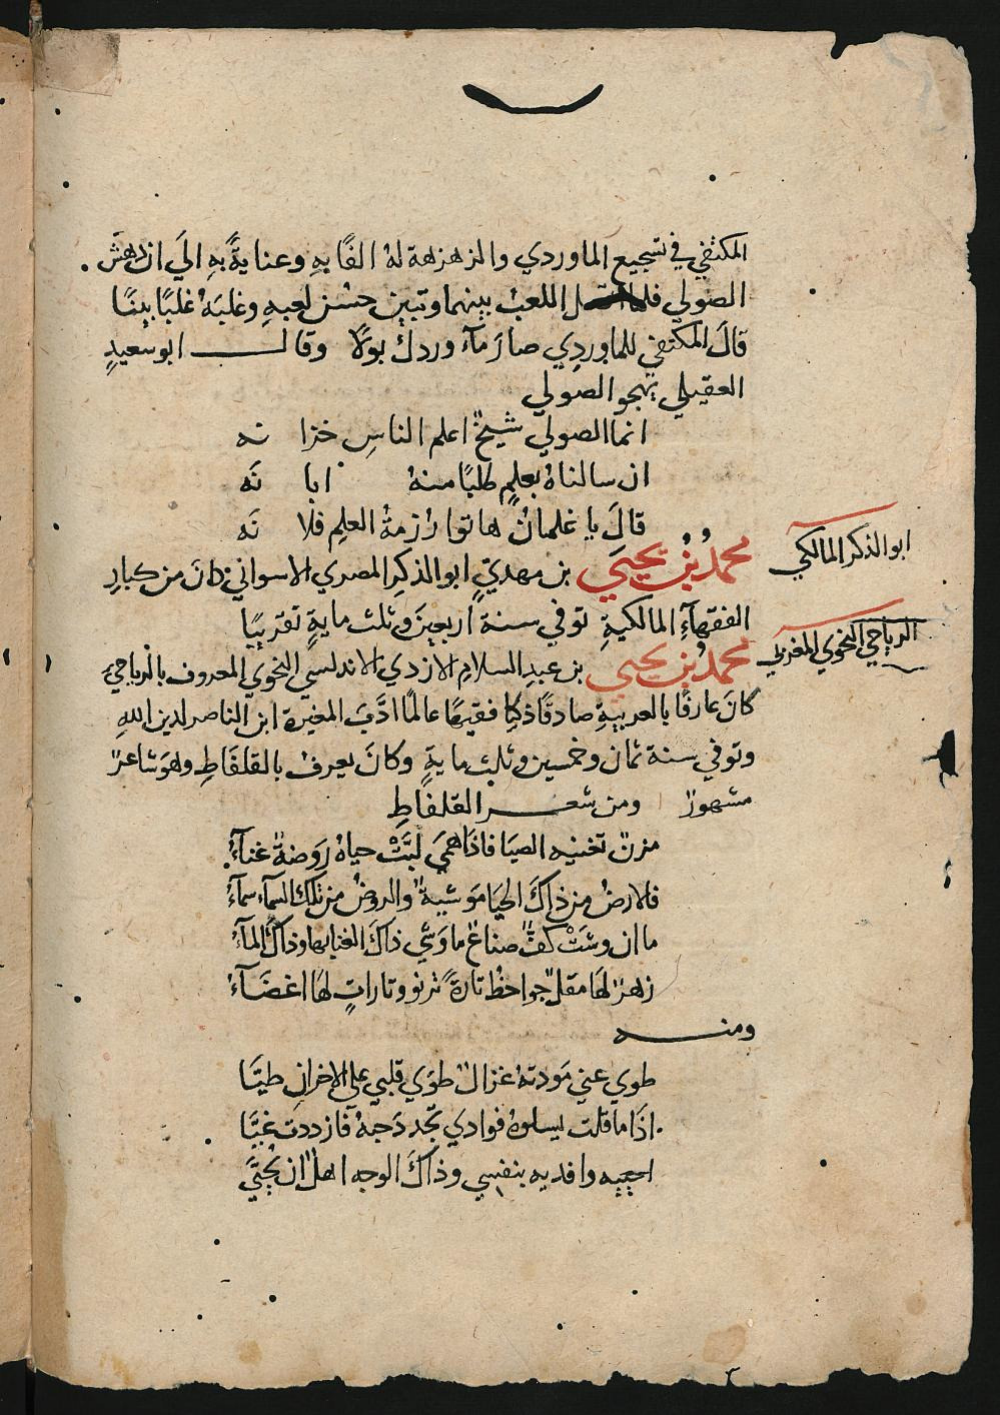 المكتفي في تشجيع الماوردي والزهزهة له الفًا به وعنايةً به الي ان دهش
الصولي فلما اتصل اللعب بينهما وتبين حسْن لعبهِ وغلبَهُ غلبًا بينًا
قالَ المكتفي للماوردِي صارَ مآء وردك بولًا وقالـــــب ابو سعيدٍ
العقيلي يهجو الصولي
انما الصولي شيخٌ اعلم الناسِ خزا نه
ان سالناهُ بعلمٍ طلبًا منهُ ابا نَه
قالَ يا غلمانُ هاتوا رُزمةُ العلمِ فلا نَه
ابو الذكر المالكي
محمدُ بنُ يحيَى بن مهديٍّ ابو الذكرِ المصري الاسواني كانَ من كبارِ
الفقهآءِ المالكيةِ توفي سنة اربعينَ وثلث مايةٍ تقريبًا
الرباحي النحوي المغربي
محمدُ بن يحيى بن عبدِ السلامِ الازدي الاندلسي النحوي المعروف بالرباحي
كانَ عارفًا بالعربيةِ صادقًا ذكيا فقيهًا عالمًا ادَّبَ المغيرة ابن الناصر لدين اللهِ
وتوفي سنة ثمان وخمسين وثلث مايةٍ وكانَ يعرفُ بالقلفَاطِ وهوَ شاعرٌ
مشهورٌ ومن شعـــر القلفَاطِ
مزنٌ تغنيه الصبَا فاذَا همَي لبَّتْ حياهُ رَوضةٌ غنآءُ
فلارضُ من ذاكَ الحيَا موَشيةٌ والروضُ من تلك السمآء سمآءُ
ما ان وشَتْ كفُّ صناعٌ ما وَشي ذاكَ الغنا بها وذاكَ المآءُ
زهرٌ لهَا مقلٌ جواحظُ تارةً ترنو وتاراتٍ لهَا اغضَآءُ
ومنـــه
طوي عني مَودتهُ غزالٌ طوَي قلبي علي الاحزانِ طيَّا
اذَا ما قلت يسلوهُ فوادي تجدد حبهُ فازددت غيَّا
احييه وافديه بنفسي وذاكَ الوجه اهلٌ ان يُحيَّي